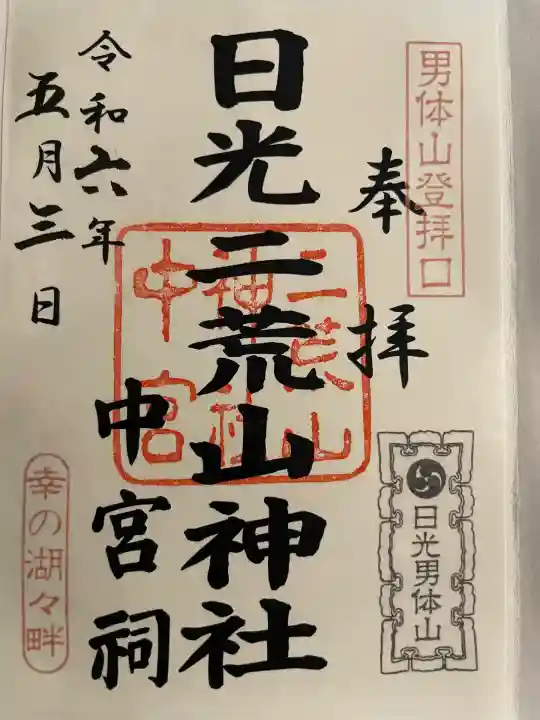 男体山登拝口
奉拝
日光男体山
日光二荒山神社
中宮祠
二荒山
神社
中宮
令和六年
五月三日
幸の湖々畔